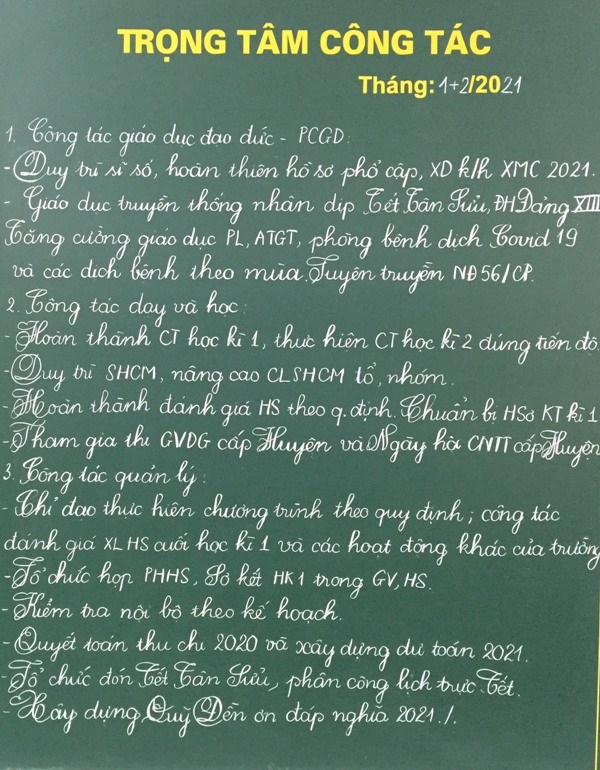 TRỌNG TÂM CÔNG TÁC
Tháng: 1+2/2021
1. Công tác giáo dục đạo đức - PCGD:
- Duy trì sĩ số, hoàn thiện hồ sơ phổ cập, XD k/h XMC 2021.
- Giáo dục truyền thống nhân dịp Tết Tân Sửu, ĐH Đảng XIII
Tăng cường giáo dục PL, ATGT, phòng bệnh dịch Covid 19
và các dịch bệnh theo mùa. Tuyên truyền NĐ56/CP.
2. Công tác dạy và học:
- Hoàn thành CT học kì 1, thực hiện CT học kì 2 đúng tiến độ.
- Duy trì SHCM, nâng cao CLSHCM tổ, nhóm.
- Hoàn thành đánh giá HS theo q. định. Chuẩn bị HSơ KT kì 1
- Tham gia thi GVDG cấp Huyện và Ngày hội CNTT cấp Huyện
3. Công tác quản lý:
- Chỉ đạo thực hiện chương trình theo quy định; công tác
đánh giá XL HS cuối học kì 1 và các hoạt động khác của trường
- Tổ chức họp PHHS, Sơ kết HK1 trong GV, HS.
- Kiểm tra nội bộ theo kế hoạch.
- Quyết toán thu chi 2020 và xây dựng dự toán 2021.
- Tổ chức đón Tết Tân Sửu, phân công lịch trực Tết.
- Xây dựng Quỹ Đền ơn đáp nghĩa 2021./.